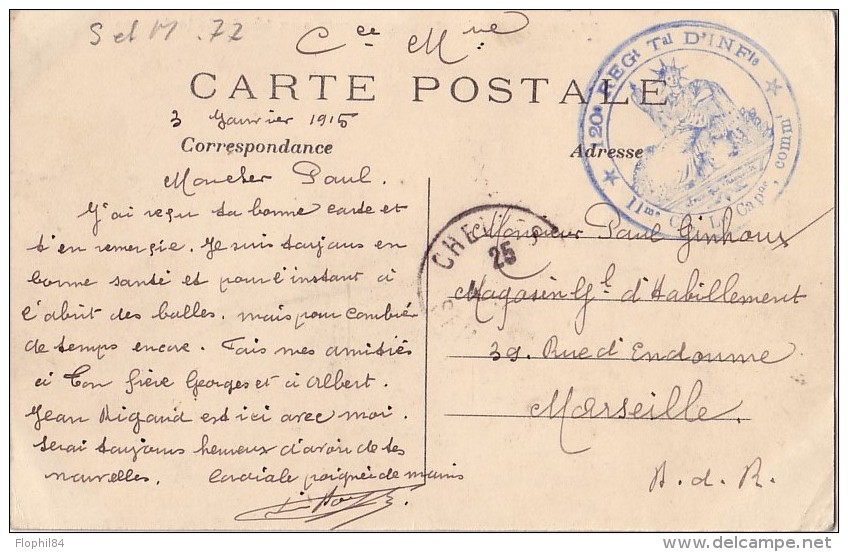 S et M . 77
Cce Mre
CARTE POSTALE
120e REGt Tal D'INFie
11me Cie Le Capne, commt
3 Janvier 1915
Correspondance
Adresse
Moncher Paul.
J'ai reçu ta bonne carte et
t'en remercie. Je suis toujours en
bonne santé et pour l'instant à
l'abrit des balles. mais pour combien
de temps encore. Fais mes amitiés
à ton frère Georges et à Albert.
Jean Rigaud est ici avec moi.
serai toujours heureux d'avoir de tes
nouvelles. Cordiale poignée de mains
CHE
25
Monsieur Paul Ginhoux
Magasin Gl. d'Habillement
39. Rue d'Endoume
Marseille.
B. d. R.
Flophil84
www.delcampe.net